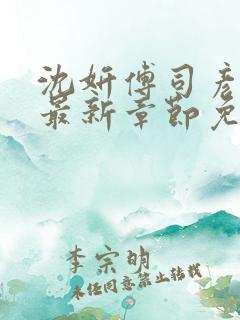 沈妍傅司彦
最新章节免
李宗明
未经同意禁止转载